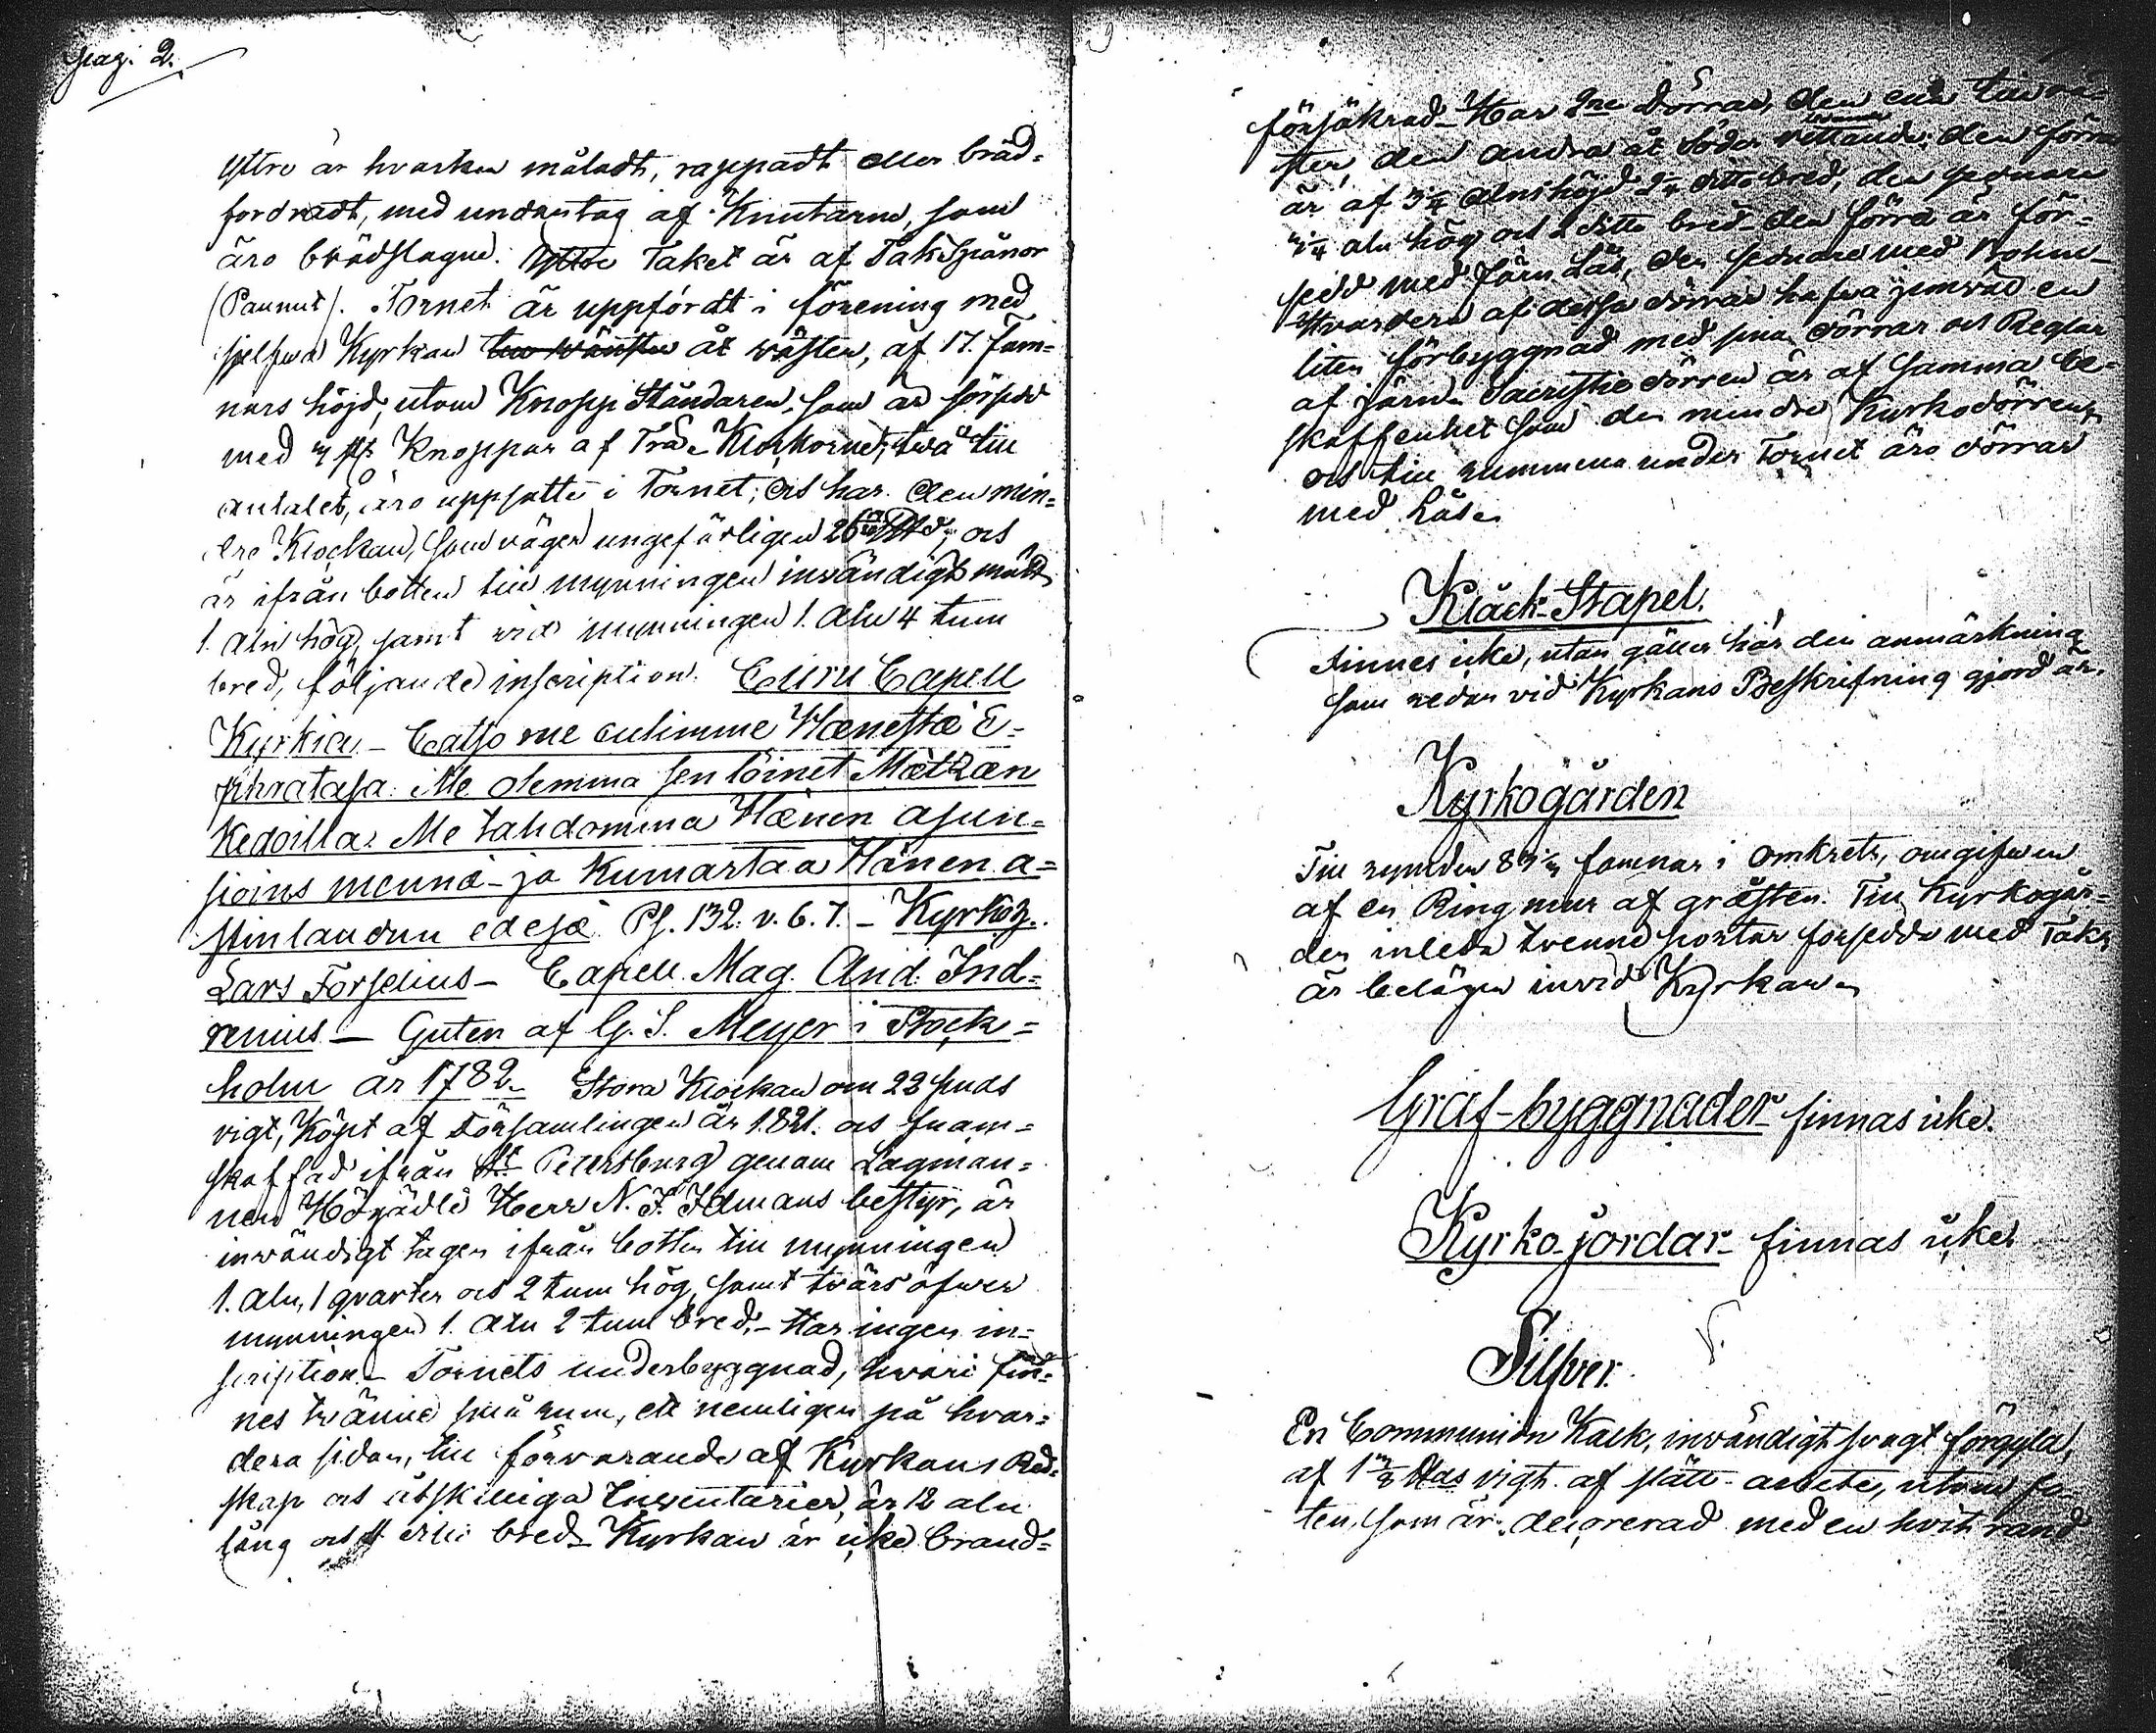 Pag. 2.
yttre är hvarken måladt, rappadt eller bräd=
fordradt, med undantag af Knutarne, som
äro brädslagne. Yttre Taket är af TakSpånor
(Pannut). Tornet är uppfördt i förening med
sjelfwa Kyrkan åt wästen, af 17. fam=
nars höjd, utom Knopp Ståndaren, som är försedd
med Knoppar af Träd. Klockorne, twå till
antalet, äro uppsatte i Tornet; och har den min=
dre Klockan, som väger ungefärligen 26 och
är ifrån botten till mynningen inwändigt mätt
1. aln hög, samt vid mynningen 1. aln 4 tum
bred, följande inscription. Euru Capell
Kyrkia – Catso me culimme Hænestæ E=
phratasa. Me olemma sen löinet Metzæn
Kedoilla. Me tahdomma Hænen asun=
sioins mennä – ja Kumartaa Hänen a=
stinlaudan edesæ. Ps. 132. v. 6. 7. – Kyrkoh.
Lars Forselius – Capell. Mag. And. Ind=
renius – Guten af G. S. Meyer i Stock=
holm år 1782. Stora Klockan om 22 puds
vigt, Köpt af Församlingen år 1821. och fram=
skaffad ifrån St Petersburg genom Lagman=
nen Högädle Herr N. F. Idmans bestyr, är
inwändigt tagen ifrån botten till mynningen
1. aln, 1 qvarter och 2 tum hög, samt twärs öfwer
mynningen 1. aln 2 tum bred. – Har ingen in=
scription – Tornets underbyggnad, hwari fin=
nes twänne små rum, ett nemligen på hvar=
dera sidan, till förwarande af Kyrkans Red=
skap och åtskilliga Inwentarier, är 12 aln
lång och bred. Kyrkan är icke brand=
försäkrad – Har 2ne Dörrar, den ena till wä=
ster, den andra åt Söder vettande; den förra
är af 3 1/4 alns höjd 2 1/4 ditto bred, den sednare
aln hög och 2 ditto bred – den förra är för=
sedd med Järn Lås, den sednare med
Hvardera af dessa dörrar hafwa jemwäl en
liten förbyggnad med sina dörrar och Reglar
af järn. Sacristie dörren är af samma be=
skaffenhet som den mindre Kyrkodörren,
och till rummena under Tornet äro dörrar
med Lås.
Kläck-Stapel.
Finnes icke, utan gäller här den anmärkning
som redan vid Kyrkans Beskrifning gjord är.
Kyrkogården
Till rymden 83 1/2 famnar i omkrets, omgifwen
af en Ring mur af gråsten. Till Kyrkogår=
den inleda twenne portar försedda med Tak,
är belägen invid Kyrkan.
Graf-byggnader finnas icke.
Kyrko-jordar – finnas icke.
Silfver.
En Communion Kalk, inwändigt svagt förgyld,
af vigt. af slätt arbete, utom fo=
ten, som är decorerad med en hvit rand